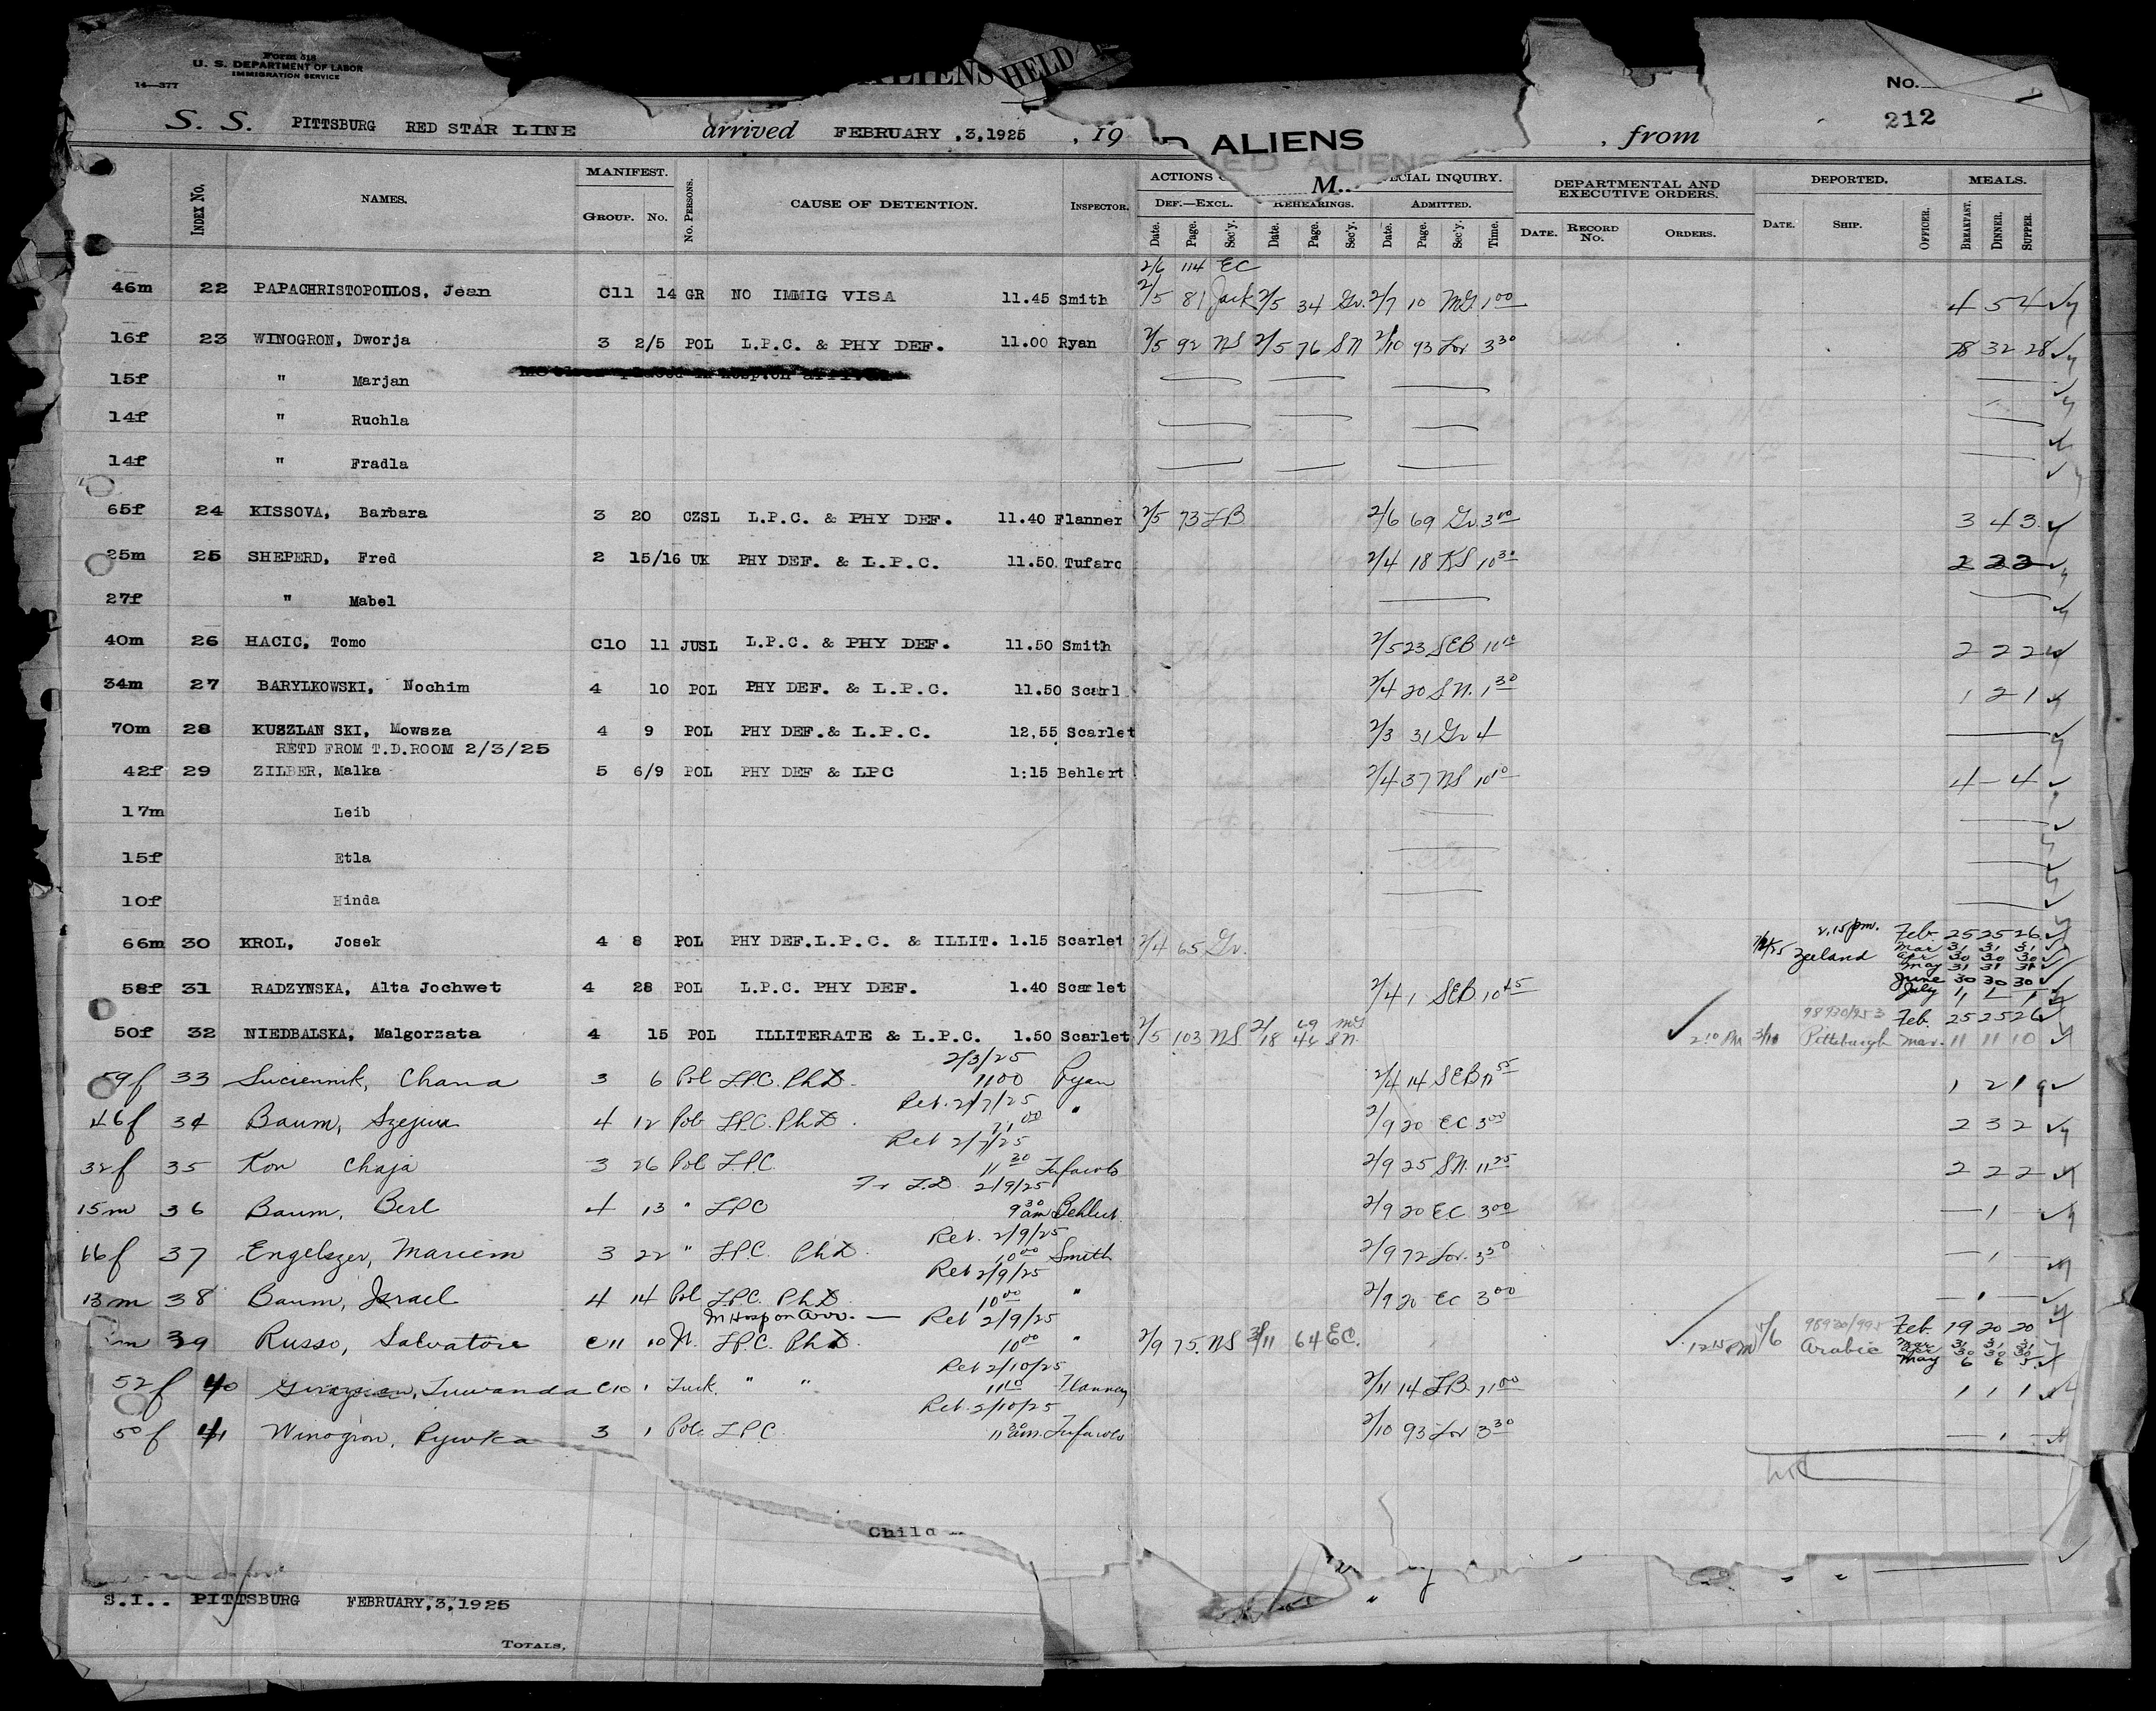 Form 518
U. S. DEPARTMENT OF LABOR
IMMIGRATION SERVICE
14—377
ALIENS HELD
No. 1
212
S. S. PITTSBURG RED STAR LINE arrived FEBRUARY ,3,1925 , 19 D ALIENS , from
M..
INDEX No. NAMES. MANIFEST. GROUP. No. No. PERSONS. CAUSE OF DETENTION. INSPECTOR. ACTIONS SPECIAL INQUIRY. DEF.—EXCL. REHEARINGS. ADMITTED. Date. Page. Sec'y. Date. Page. Sec'y. Date. Page. Sec'y. Time. DEPARTMENTAL AND EXECUTIVE ORDERS. DATE. RECORD No. ORDERS. DEPORTED. DATE. SHIP. OFFICER. MEALS. BREAKFAST. DINNER. SUPPER.
2/6 114 EC
46m 22 PAPACHRISTOPOULOS, Jean C11 14 GR NO IMMIG VISA 11.45 Smith 2/5 81 Jack 2/5 34 Gr. 2/7 10 McG 1 00 4 5 4
16f 23 WINOGRON, Dworja 3 2/5 POL L.P.C. & PHY DEF. 11.00 Ryan 2/5 92 NS 2/5 76 SN 2/10 93 Lor 3 30 28 32 28
15f " Marjan
14f " Ruchla
14f " Fradla
65f 24 KISSOVA, Barbara 3 20 CZSL L.P.C. & PHY DEF. 11.40 Flanner 2/5 73 LB 2/6 69 Gr 3 00 3 4 3
25m 25 SHEPERD, Fred 2 15/16 UK PHY DEF. & L.P.C. 11.50 Tufaro 2/4 18 KS 10 30 2 2 2
27f " Mabel
40m 26 HACIC, Tomo C10 11 JUSL L.P.C. & PHY DEF. 11.50 Smith 2/5 23 SEB 11 10 2 2 2
34m 27 BARYLKOWSKI, Nochim 4 10 POL PHY DEF. & L.P.C. 11.50 Scarl 2/4 20 SN. 1 30 1 2 1
70m 28 KUSZLAN SKI, Mowsza 4 9 POL PHY DEF.& L.P.C. 12,55 Scarlet 2/3 31 Gr 4
RETD FROM T.D.ROOM 2/3/25
42f 29 ZILBER, Malka 5 6/9 POL PHY DEF & LPC 1:15 Behlert 2/4 37 NS 10 10 4 – 4
17m Leib
15f Etla
10f Hinda
66m 30 KROL, Josek 4 8 POL PHY DEF.L.P.C. & ILLIT. 1.15 Scarlet 2/4 65 Gr. 2.15 pm. Zeeland Feb. 25 25 26
Mar 31 31 31
Apr 30 30 30
May 31 31 31
June 30 30 30
July 1 1 – 1
58f 31 RADZYNSKA, Alta Jochwet 4 28 POL L.P.C. PHY DEF. 1.40 Scarlet 2/4 1 SEB 10 45
98920/253 Feb. 25 25 26
50f 32 NIEDBALSKA, Malgorzata 4 15 POL ILLITERATE & L.P.C. 1.50 Scarlet 2/5 103 NS 2/18 69 McG 44 SN. 2 10 PM 3/11 Pittsburgh Mar. 11 11 10
2/3/25
59f 33 Suciennik, Chana 3 6 Pol LPC. PhD. 1100 Ryan 2/4 14 SEB 11 55 1 2 1
Ret. 2/7/25
46f 34 Baum, Szejwa 4 12 Pol LPC. PhD. 11 00 " 2/9 20 EC 3 00 2 3 2
Ret 2/7/25
32f 35 Kon Chaja 3 26 Pol LPC. 11 30 Tufarolo 2/9 25 SN. 11 25 2 2 2
Fr T.D. 2/9/25
15m 36 Baum, Berl 4 13 " LPC 9 30 am Behlert. 2/9 20 EC 3 00 – 1 –
Ret. 2/9/25
16f 37 Engelszer, Mariem 3 22 " LPC. PhD. 10 00 Smith 2/9 72 Lor. 3 50 – 1 –
Ret 2/9/25
13m 38 Baum, Israel 4 14 Pol LPC. PhD. 10 00 " 2/9 20 EC 3 00 – 1 –
In Hosp on Arr. — Ret 2/9/25
m 39 Russo, Salvatore C11 10 It. LPC. PhD. 10 00 " 2/9 75 NS 3/11 64 EC. 12 15 PM 5/6 98920/995 Arabic Feb. 19 20 20
Mar 31 31 31
30 30 30
May 6 6 5
Ret 2/10/25
52f 40 C10 1 Turk. " " 11 10 Flannery 2/11 14 LB. 11 00 1 1 1
Ret. 2/10/25
50f 41 Winogron, Rywka 3 1 Pol. LPC. 11 30 am. Tufarolo 2/10 93 Lor 3 30 – 1 –
Child
S.I.. PITTSBURG FEBRUARY,3,1925
TOTALS,